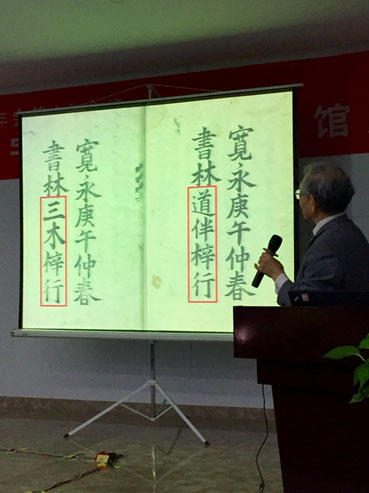 年
馆
寬永庚午仲春
書林道伴梓行
寬永庚午仲春
書林三木梓行